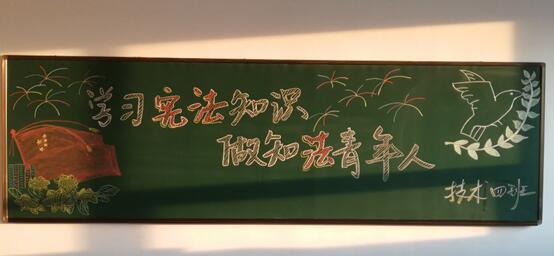 学习宪法知识
做知法青年人
技术四班